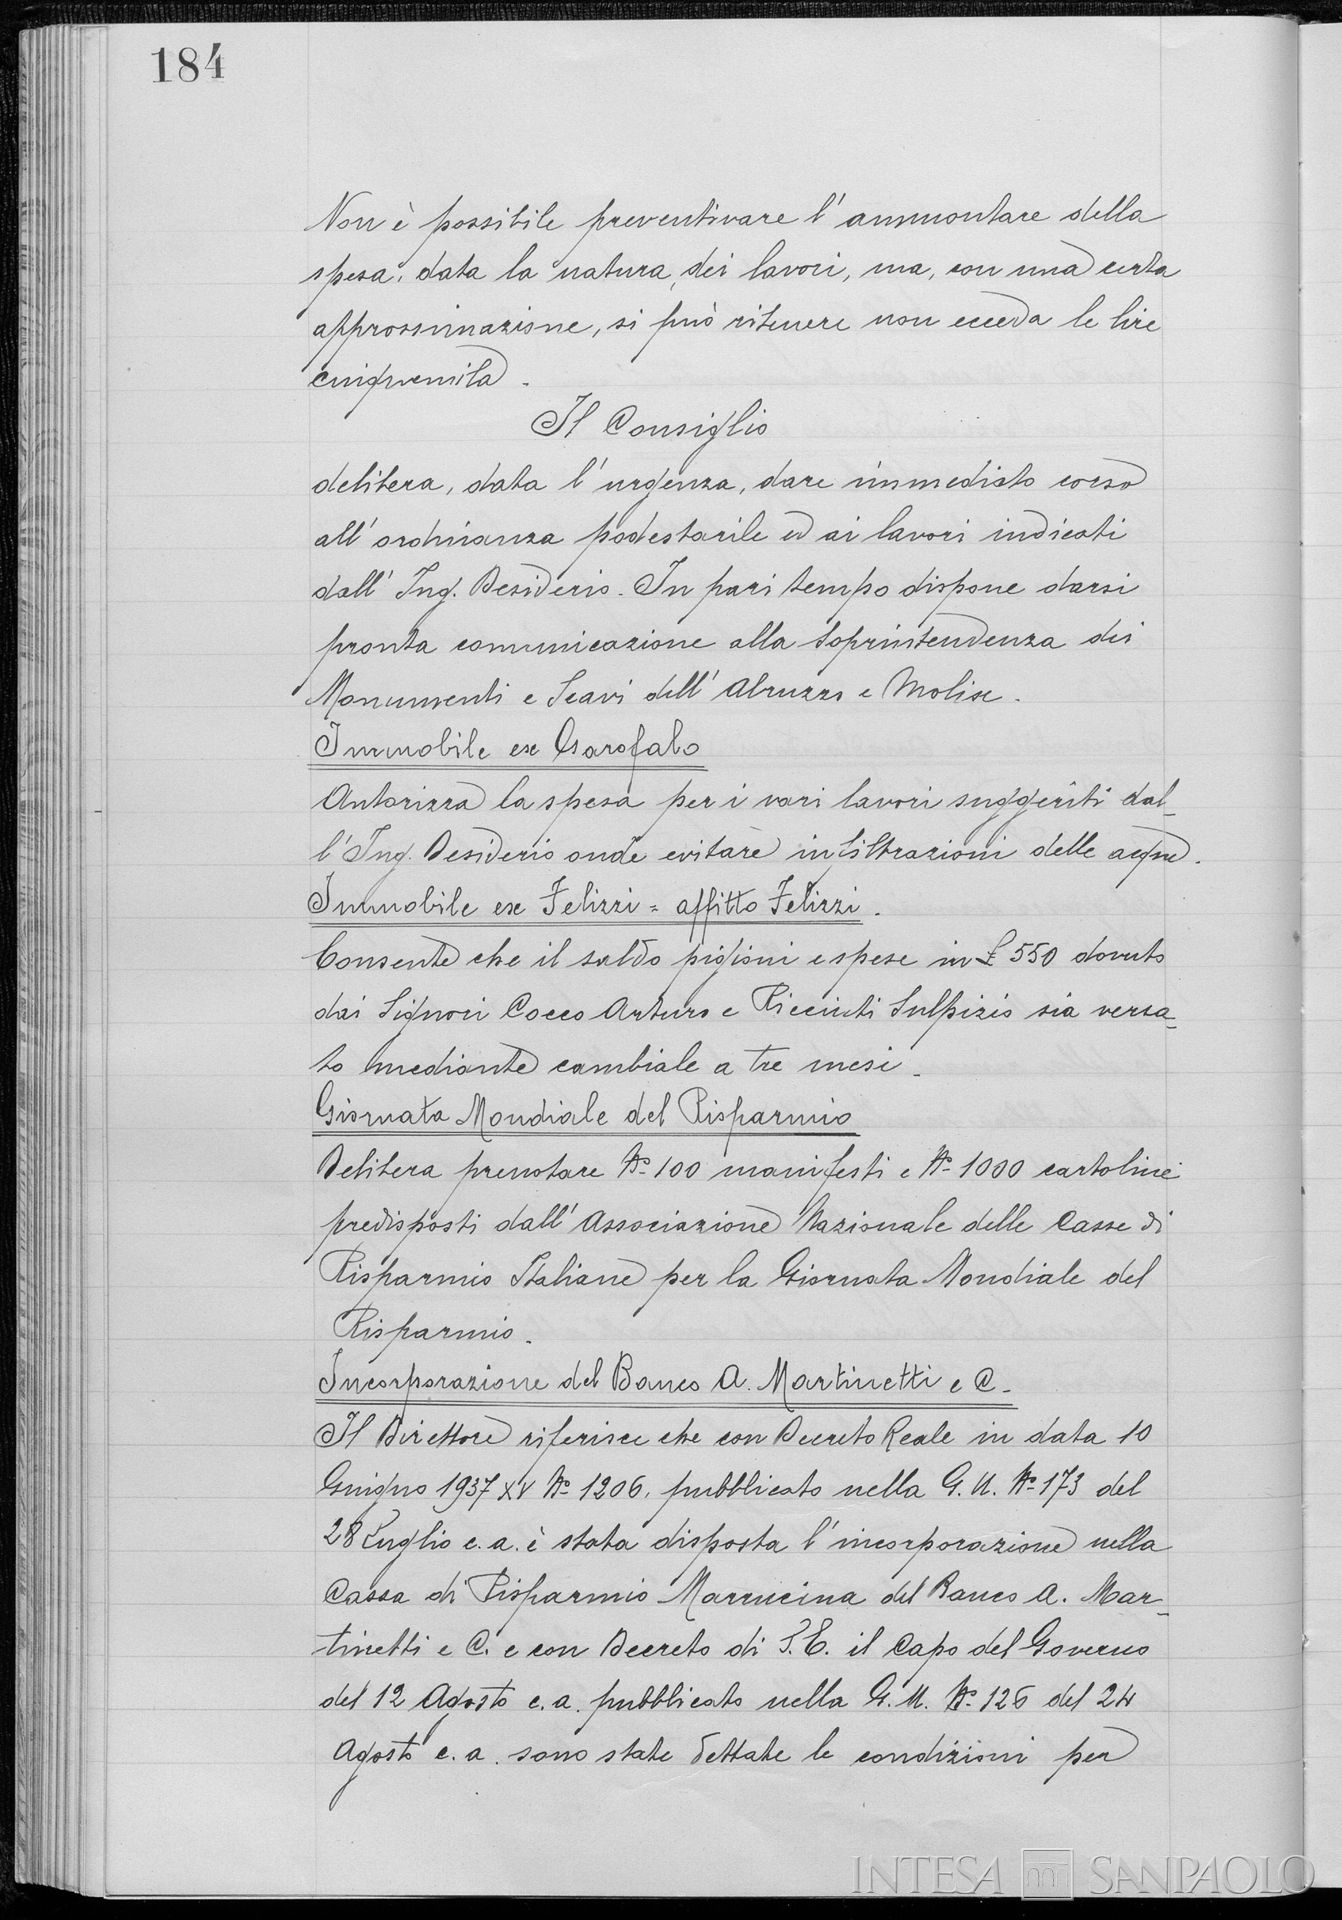 184
Non è possibile preventivare l'ammontare della
spesa, data la natura dei lavori, ma, con una certa
approssimazione, si può ritenere non ecceda le lire
cinquemila.
Il Consiglio
delibera, data l'urgenza, dare immediato corso
all'ordinanza podestarile ed ai lavori indicati
dall'Ing. Desiderio. In pari tempo dispone darsi
pronta comunicazione alla Soprintendenza dei
Monumenti e Scavi dell'Abruzzo e Molise.
Immobile ex Garofalo
Autorizza la spesa per i vari lavori suggeriti dal-
l'Ing. Desiderio onde evitare infiltrazioni delle acque.
Immobile ex Felizzi = affitto Felizzi.
Consente che il saldo pigioni e spese in £ 550 dovuto
dai Signori Cocco Arturo e Ricciuti Sulpizio sia versa-
to mediante cambiale a tre mesi.
Giornata Mondiale del Risparmio
Delibera prenotare N° 100 manifesti e N° 1000 cartoline
predisposti dall'Associazione Nazionale delle Casse di
Risparmio Italiane per la Giornata Mondiale del
Risparmio.
Incorporazione del Banco A. Martinetti e C.
Il Direttore riferisce che con Decreto Reale in data 10
Giugno 1937 XV N° 1206, pubblicato nella G. U. N° 173 del
28 Luglio c. a. è stata disposta l'incorporazione nella
Cassa di Risparmio Marrucina del Banco A. Mar-
tinetti e C. e con Decreto di S. E. il Capo del Governo
del 12 Agosto c. a. pubblicato nella G. U. N° 126 del 24
Agosto c. a. sono state dettate le condizioni per
INTESA SANPAOLO